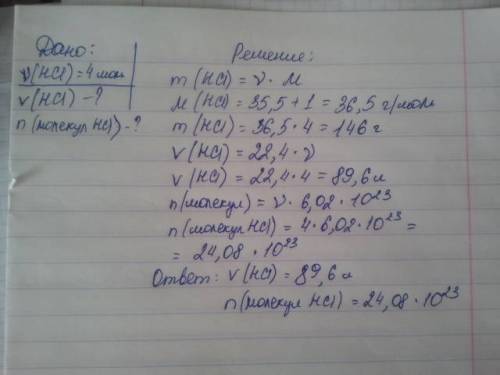 Дано:
ν(HCl) = 4 моль
v(HCl) - ?
n(молекул HCl) - ?
Решение:
m(HCl) = ν · M
M(HCl) = 35,5 + 1 = 36,5 г/моль
m(HCl) = 36,5 · 4 = 146 г
v(HCl) = 22,4 · ν
v(HCl) = 22,4 · 4 = 89,6 л
n(молекул) = ν · 6,02 · 10²³
n(молекул HCl) = 4 · 6,02 · 10²³ =
= 24,08 · 10²³
Ответ: v(HCl) = 89,6 л
n(молекул HCl) = 24,08 · 10²³